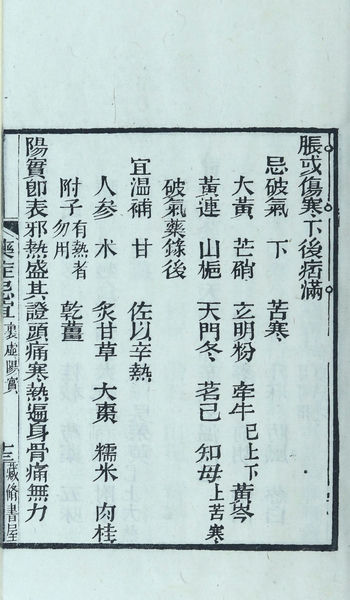 脹或傷寒下後痞滿
忌破氣 下 苦寒
大黃 芒硝 玄明粉 牽牛已上下 黃芩
黃連 山梔 天門冬 茗 已 知母上苦寒
破氣藥錄後
宜温補 甘 佐以辛熱
人參 朮 炙甘草 大棗 糯米 肉桂
附子有熱者勿用 乾薑
陽實卽表邪熱盛其證頭痛寒熱遍身骨痛無力
藥症忌宜 裏虛陽實 十三 藏脩書屋